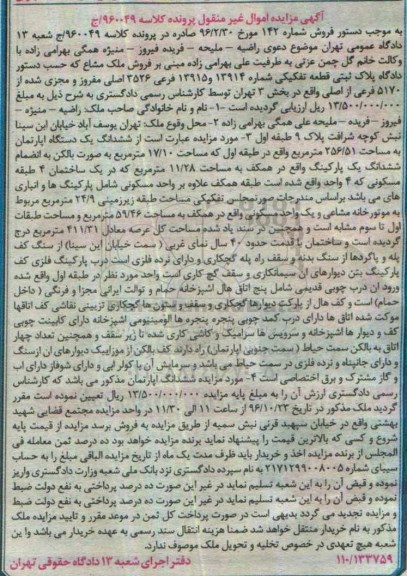 آگهی مزایده اموال غیر منقول پرونده کلاسه ۹۶۰۰۴۹/ج
به موجب دستور فروش شماره ۱۴۲ مورخ ۹۶/۲/۳۰ صادره در پرونده کلاسه ۹۶۰۰۴۹/ج شعبه ۱۳
دادگاه عمومی تهران موضوع دعوی راضیه - ملیحه - فریده فیروز - منیژه همگی بهرامی زاده با
وکالت خانم گل چمن عزتی به طرفیت علی بهرامی زاده مبنی بر فروش ملک مشاع که حسب دستور
دادگاه پلاک ثبتی قطعه تفکیکی شماره ۱۳۹۱۴ و ۱۳۹۱۵ فرعی ۳۵۲۶ اصلی مفروز و مجزی شده از
۵۱۷۰ فرعی از اصلی واقع در بخش ۳ تهران توسط کارشناس رسمی دادگستری به شرح ذیل به مبلغ
۱۳/۵۰۰/۰۰۰/۰۰۰ ریل ارزیابی گردیده است ۱- نام و نام خانوادگی صاحب ملک: راضیه - منیژه -
فیروز - فریده - ملیحه علی همگی بهرامی زاده ۲- محل وقوع ملک: تهران یوسف آباد خیابان ابن سینا
نبش کوچه شرافت پلاک ۹ طبقه اول ۳- مورد مزایده عبارت است از ششدانگ یک دستگاه اپارتمان
به مساحت ۲۵۶/۵۱ مترمربع واقع در طبقه اول که مساحت ۱۷/۱۰ مترمربع به صورت بالکن به انضمام
ششدانگ یک پارکینگ واقع در همکف به مساحت ۱۱/۲۸ مترمربع که در یک ساختمان ۴ طبقه
مسکونی که ۴ واحد واقع شده است طبقه همکف علاوه بر واحد مسکونی شامل پارکینگ ها و انباری
های می باشد براساس مندرجات صورتمجلس تفکیکی مساحت طبقه زیرزمینی ۲۴/۹ مترمربع مربوط
به موتورخانه مشاعی و یک واحد مسکونی واقع در همکف به مساحت ۵۹/۴۶ مترمربع و مساحت طبقات
اول تا سوم مشابه است و همچنین در سند یاد شده مساحت کل عرصه معادل ۴۱۱/۳۱ مترمربع درج
گردیده است و ساختمان با قدمت حدود ۴۰ سال نمای غربی ( سمت خیابان ابن سینا) از سنگ کف
پله و پاگردها از سنگ بدنه و سقف راه پله گچکاری و دارای نرده فلزی است درب پارکینگ فلزی کف
پارکینگ بتن دیوارهای آن سیمانکاری و سقف گچ کاری است واحد مورد نظر در طبقه اول واقع شده
ورود ان درب چوبی قدیمی شامل پنج اتاق هال اشپزخانه حمام و توالت ایرانی مجزا و فرنگی ( داخل
حمام) است و کف هال از پارکت دیوارها گچکاری و سقف و ستون ها گچکاری تزیینی نقاشی کف اتاقها
موکت شده اتاق ها دارای درب کمد چوبی پنجره پنجره ها الومینیومی اشپزخانه دارای کابینت چوبی
کف و دیوار ها اشپزخانه و سرویس ها سرامیک و کاشی کاری شده تا زیر سقف و همچنین تعداد چهار
اتاق به بالکن سمت حیاط ( سمت جنوبی اپارتمان) راه دارند کف بالکن از موزاییک دیوارهای ان ازسنگ
و دارای جانپناه و نرده فلزی در سمت حیاط می باشد و سرمایش آن با کولر ابی و دارای شوفاژ دارای اب
و گاز مشترک و برق اختصاصی است ۴- مورد مزایده ششدانگ اپارتمان مذکور می باشد که کارشناس
رسمی دادگستری ارزش آن را به مبلغ پایه مزایده ۱۳/۵۰۰/۰۰۰/۰۰۰ ریال تعیین نموده است مقرر
گردید ملک مذکور در تاریخ ۹۶/۱۰/۲۳ از ساعت ۱۱ الی ۱۱/۳۰ در واحد مزایده مجتمع قضایی شهید
بهشتی واقع در خیابان سپهبد قرنی نبش سمیه از طریق مزایده به فروش برسد مزایده از قیمت پایه
شروع و کسی که بالاترین قیمت را پیشنهاد نماید برنده مزایده خواهد بود ده درصد ثمن معامله فی
المجلس از برنده مزایده اخذ و خریدار باید ظرف مدت یک ماه از تاریخ مزایده الباقی مبلغ را به حساب
سیبای شماره ۲۱۷۱۲۹۹۰۰۸۰۰۵ به نام سپرده دادگستری نزد بانک ملی شعبه وزارت دادگستری واریز
نموده و قبض آن را به این شعبه تسلیم نماید در غیر این صورت ده درصد پرداختی به نفع دولت ضبط
نموده و قبض آن را به این شعبه تسلیم نماید در غیر این صورت ده درصد پرداختی به نفع دولت ضبط
و مزایده تجدید می گردد بدیهی است در صورت پرداخت کل ثمن در موعد مقرر و تایید مزایده ملک
مذکور به نام خریدار منتقل خواهد شد ضمنا هزینه انتقال سند رسمی به عهده خریدار می باشد و این
شعبه هیچ تعهدی در خصوص تخلیه و تحویل ملک موصوف ندارد.
۱۱۰/۱۳۳۷۵۹ دفتر اجرای شعبه ۱۳ دادگاه حقوقی تهران